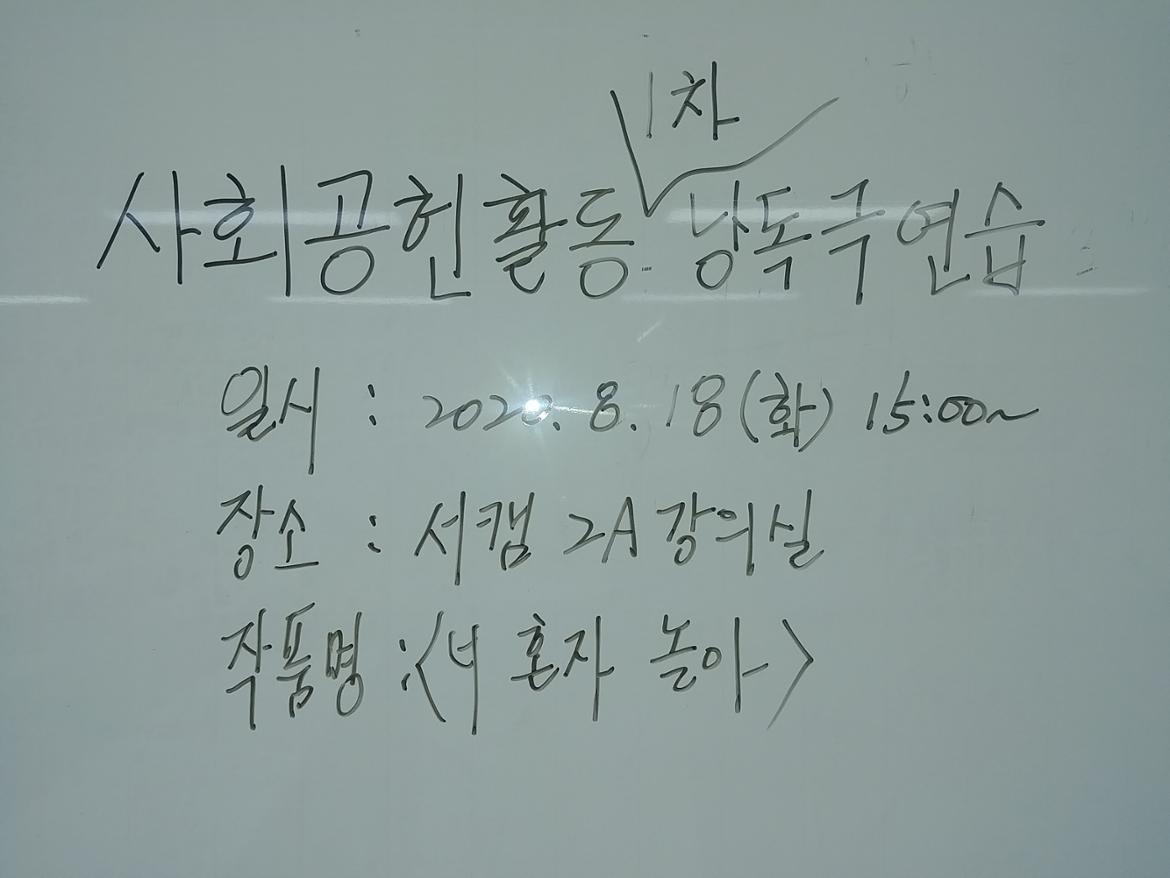 사회공헌활동 1차 낭독극연습
일시 : 2020. 8. 18 (화) 15:00~
장소 : 서캠 2A 강의실
작품명 : <너 혼자 놀아>